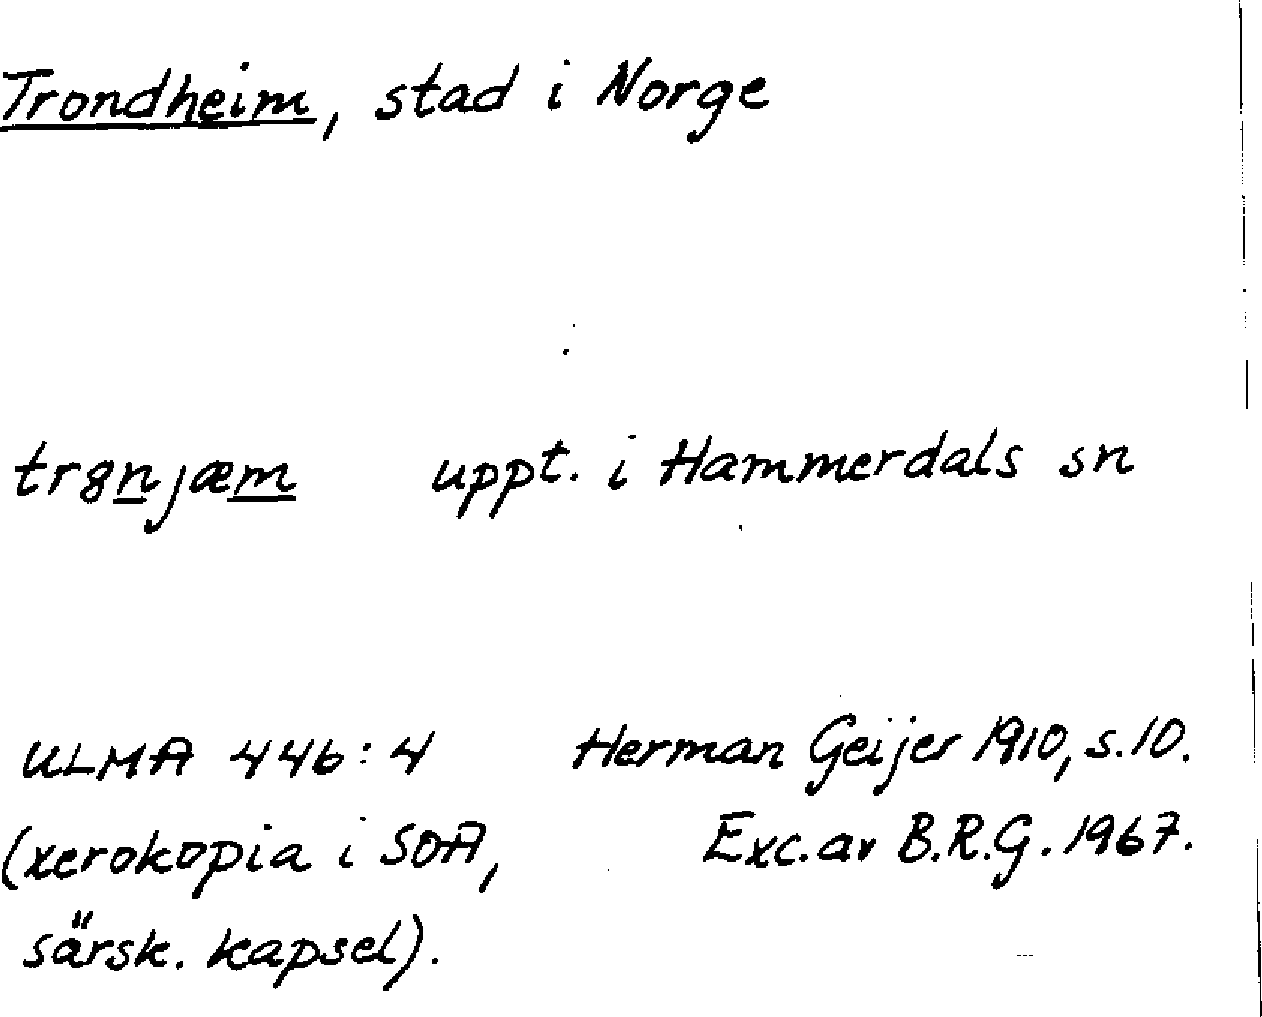 Trondheim, stad i Norge
tr8njæm uppt. i Hammerdals sn
ULMA 446:4 Herman Geijer 1910, s.10.
(xerokopia i SOA, Exc. av B.R.G. 1967.
särsk. kapsel).